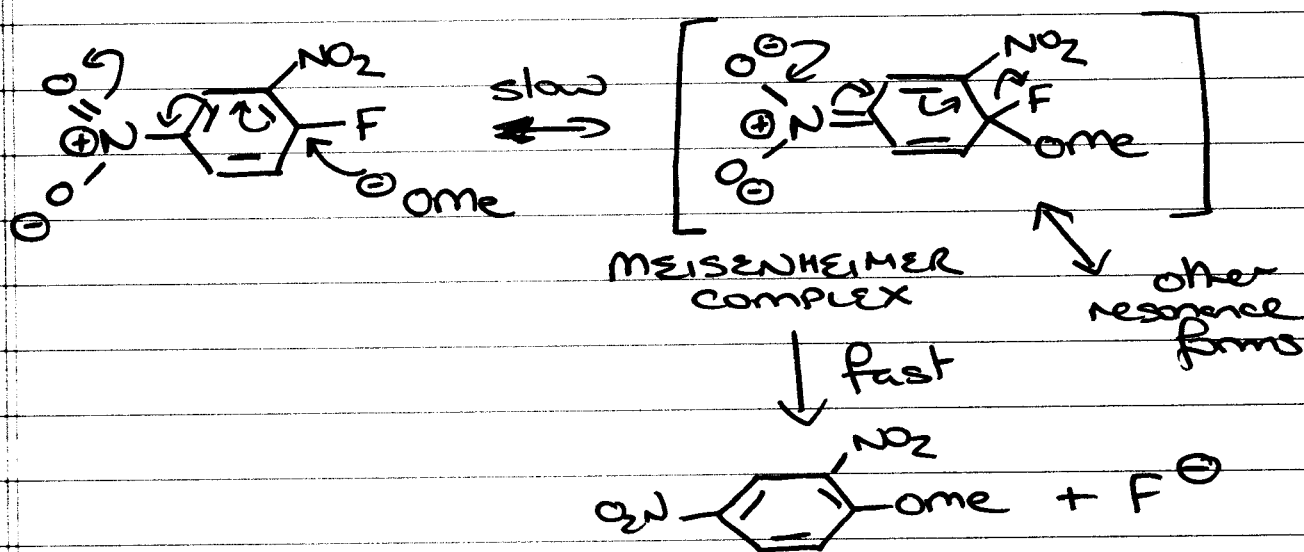 NO2
O
slow
⊕ N
F
O
⊖
⊖ OMe
NO2
O⊖
⊕ N
F
OMe
O⊖
MEISENHEIMER
COMPLEX
other
resonance
forms
fast
NO2
O2N
OMe + F⊖